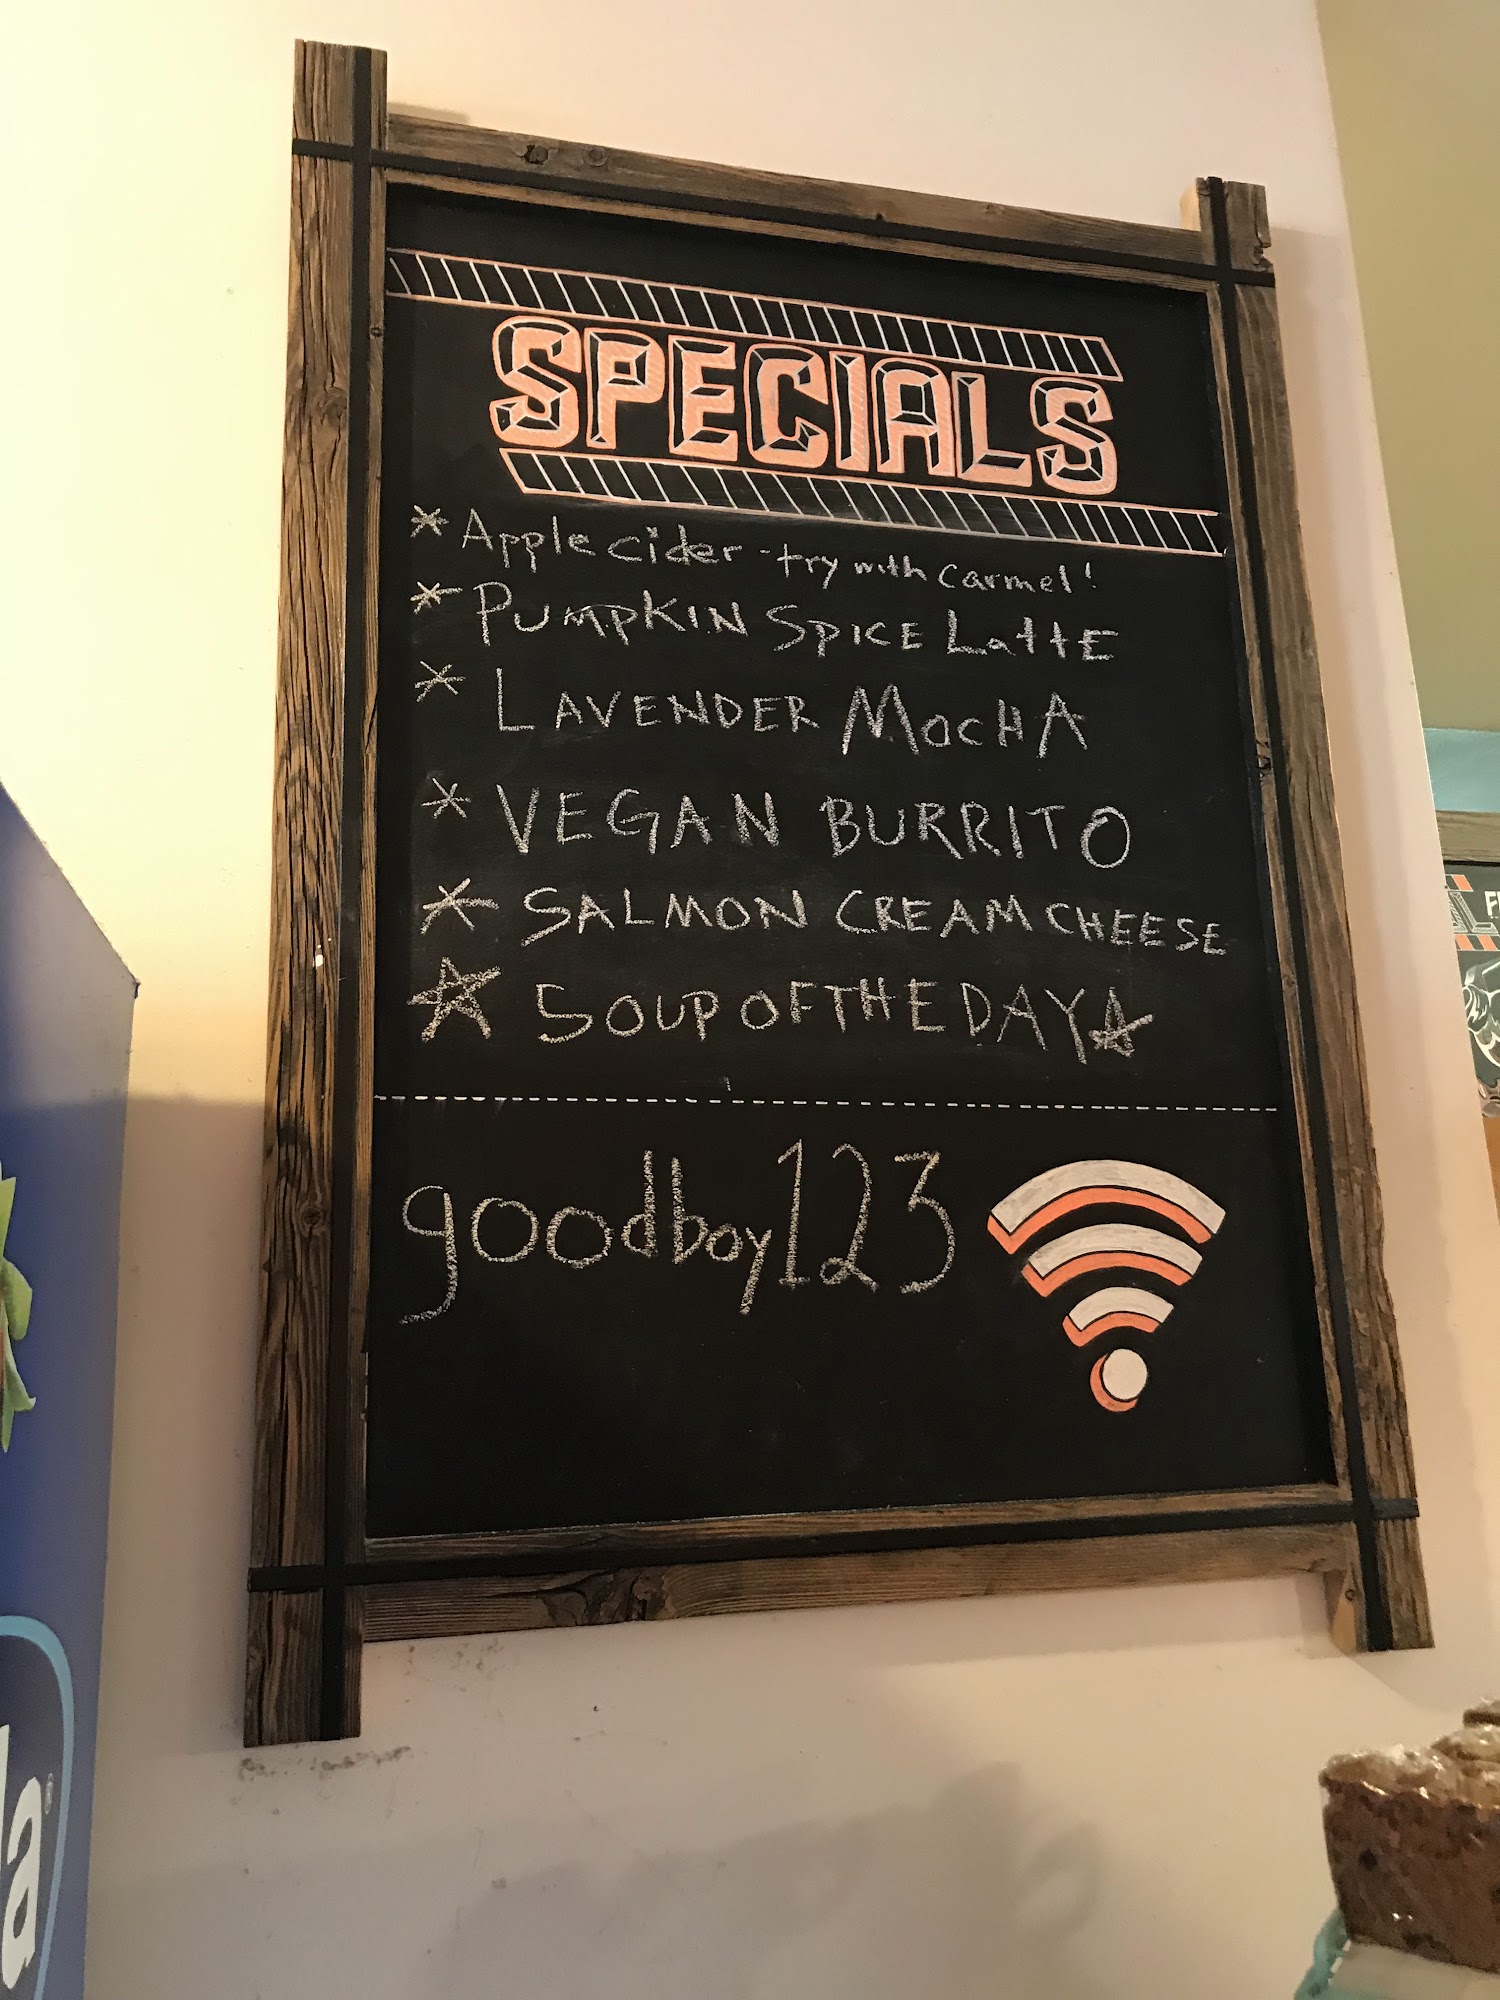 SPECIALS
* Apple cider - try with carmel!
* PUMPKIN SPICE LattE
* LAVENDER MOCHA
* VEGAN BURRITO
* SALMON CREAM CHEESE
☆ SOUP OF THE DAY ☆
goodboy123